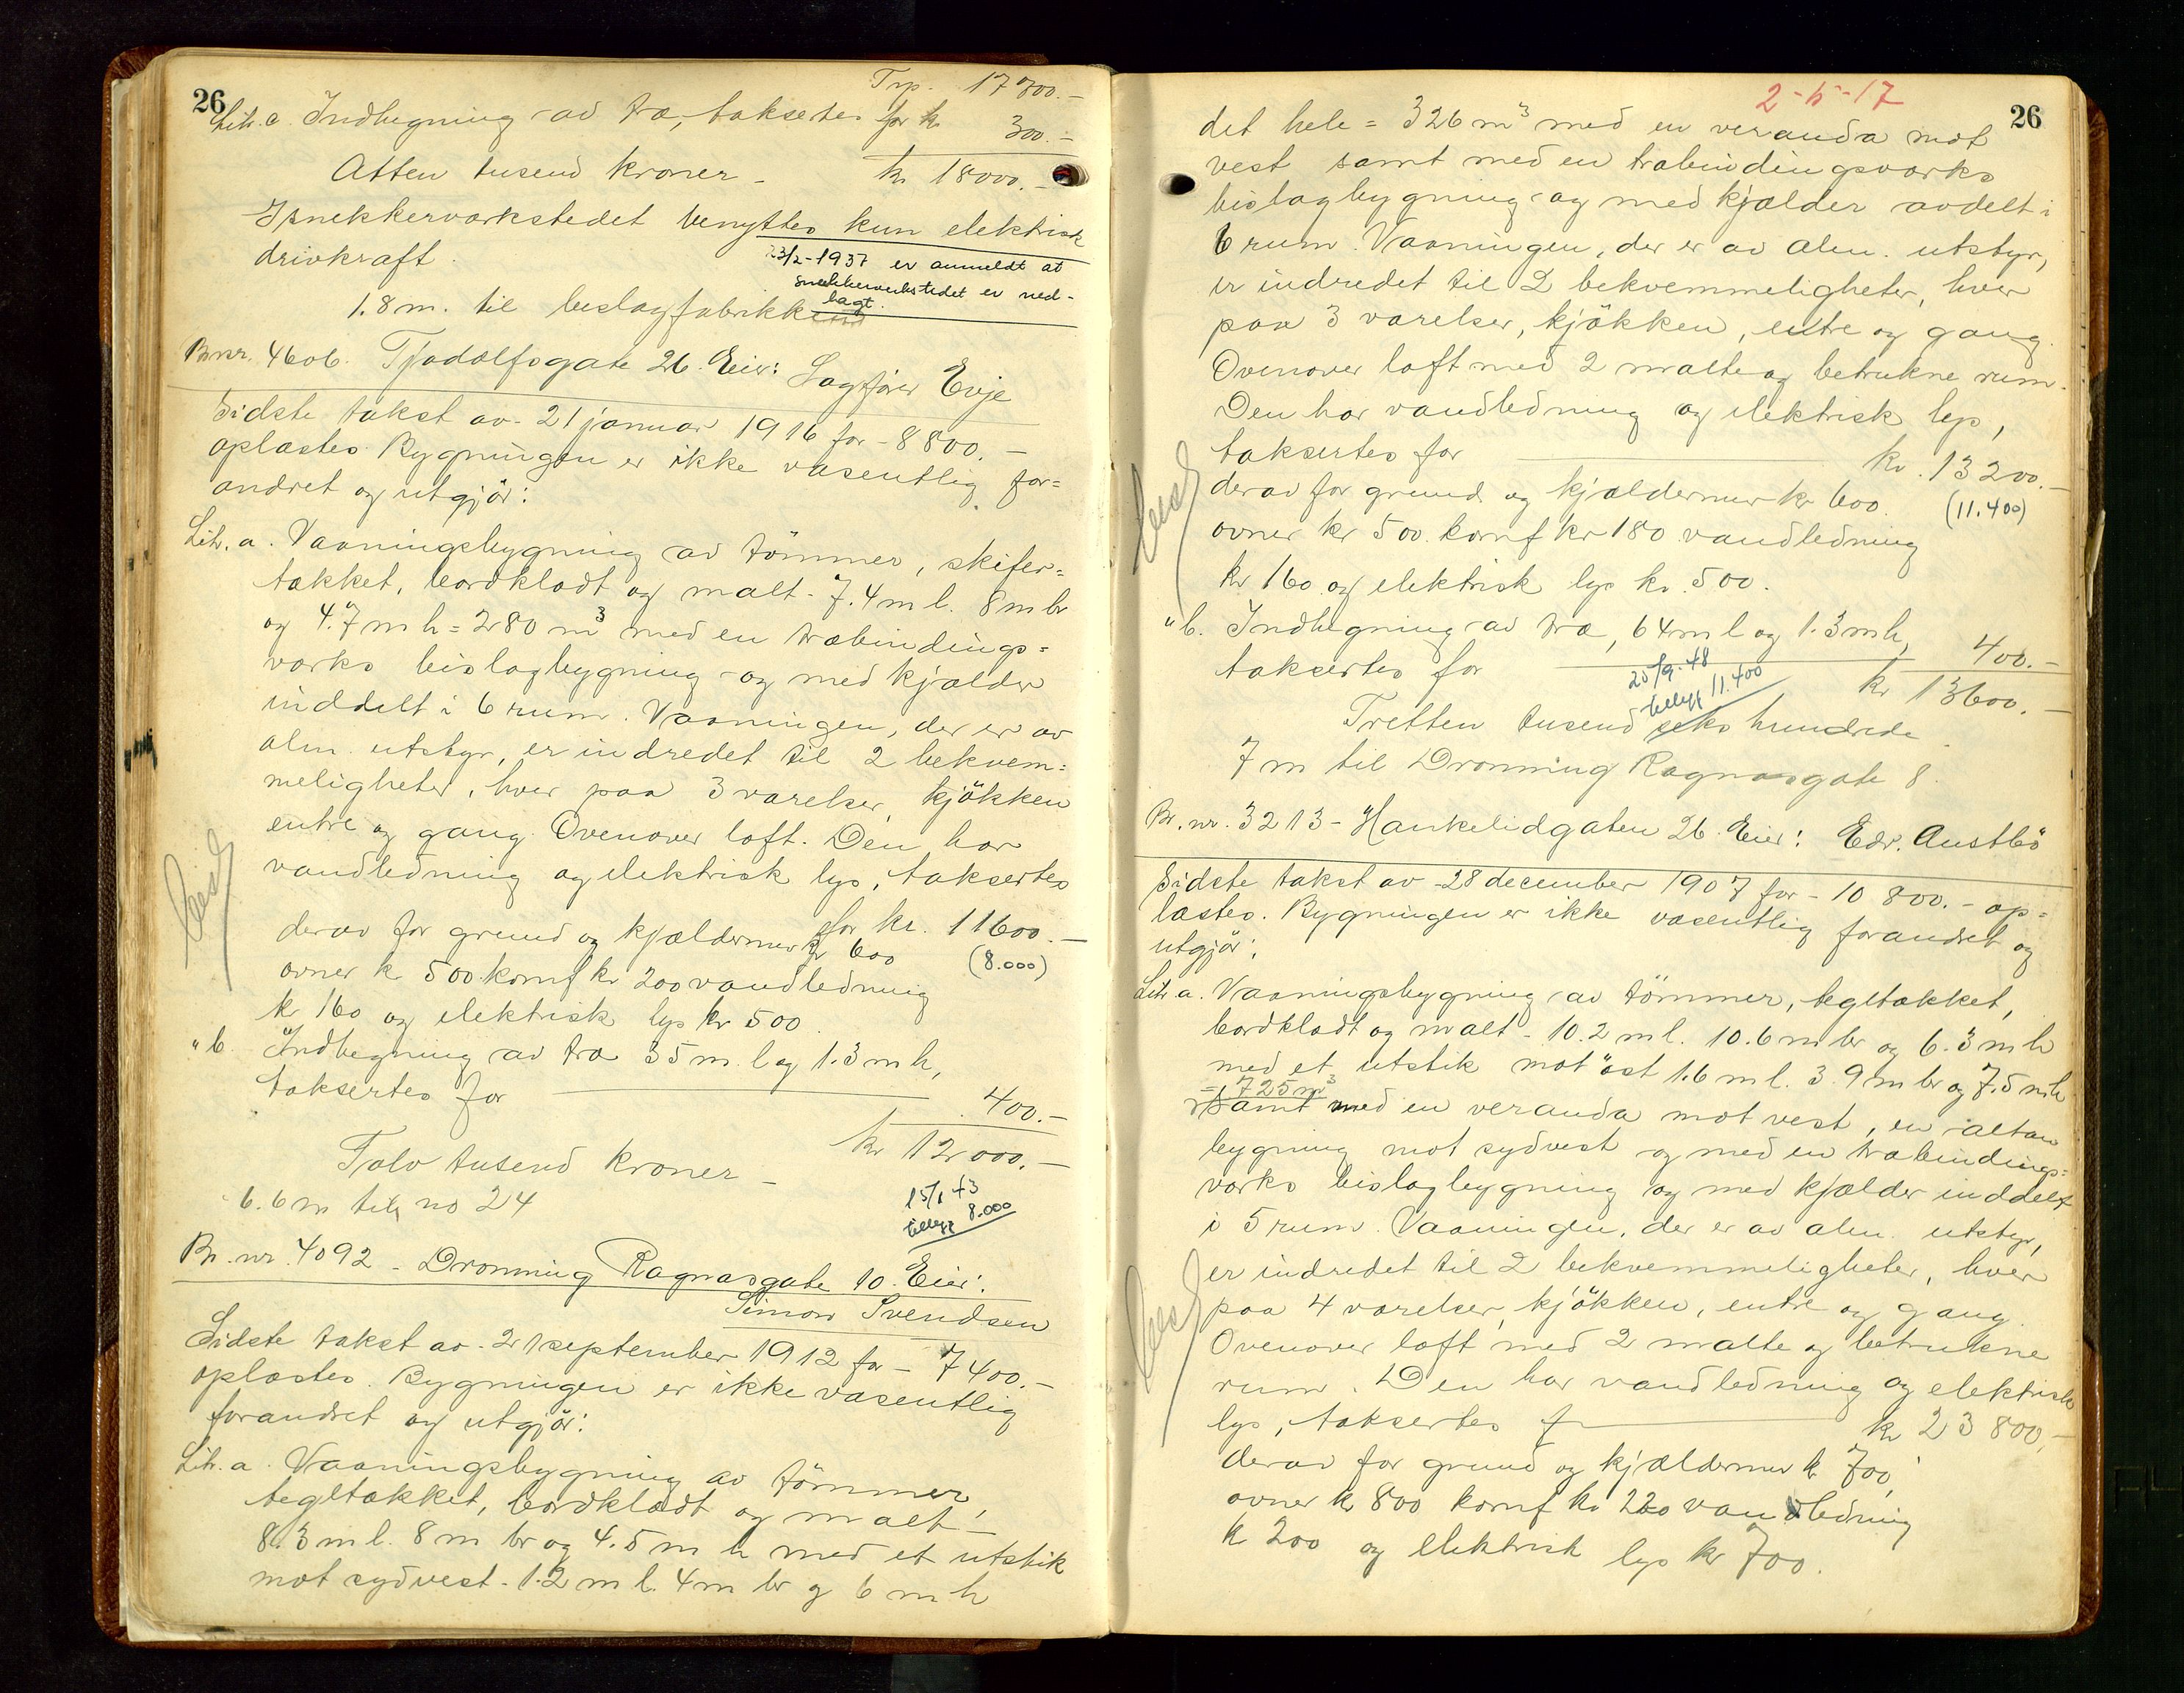 26
Trp. 17700.-
Litr. c. Indhegning av træ, taksertes for kr. 300.-
Atten tusend kroner - kr 18000.-
I snekkerværkstedet benyttes kun elektrisk
drivkraft.
23/2-1937 er anmeldt at
snekkerverkstedet er ned-
lagt.
1.8 m. til beslagfabrikken
Br.nr. 4606. Tjodolfsgate 26. Eier: Sagfører Evje
Sidste takst av - 21 januar 1916 for - 8800.-
oplæstes. Bygningen er ikke væsentlig for=
andret og utgjör:
Litr. a. Vaaningsbygning av tömmer, skifer=
tækket, bordklædt og malt - 7.4 m l. 8 m br
og 4.7 m h = 280 m³ med en træbindings=
værks bislagbygning og med kjælder
inddelt i 6 rum. Vaaningen, der er av
alm. utstyr, er indredet til 2 bekvem=
meligheter, hver paa 3 værelser, kjökken
entre og gang. Ovenover loft. Den har
vandledning og elektrisk lys, taksertes
for kr. 11600.-
derav for grund og kjældermur kr 600
(8.000)
ovner kr 500. komf kr 200 vandledning
kr 160 og elektrisk lys kr 500.
" b. Indhegning av træ 35 m. l og 1.3 m h,
taksertes for 400.-
kr 12000.-
Tolv tusend kroner -
6.6 m til no 24
15/1 43
belegg 8.000
Br. nr. 4092 - Dronning Ragnasgate 10. Eier:
Simon Svendsen
Sidste takst av - 21 september 1912 for - 7400.-
oplæstes. Bygningen er ikke væsentlig
forandret og utgjör:
Litr. a. Vaaningsbygning av tömmer,
tegltækket, bordklædt og malt -
8.3 m l. 8 m br og 4.5 m h med et utstik
mot sydvest - 1.2 m l. 4 m br og 6 m h
2-5-17
26
det hele = 326 m³ med en veranda mot
vest samt med en træbindingsværks
bislagbygning og med kjælder avdelt i
6 rum. Vaaningen, der er av alm. utstyr,
er indredet til 2 bekvemmeligheter, hver
paa 3 værelser, kjökken, entre og gang.
Ovenover loft med 2 malte og betrukne rum.
Den har vandledning og elektrisk lys,
taksertes for kr. 13200.-
derav for grund og kjældermur kr 600.
(11.400)
ovner kr 500. komf kr 180 vandledning
kr 160 og elektrisk lys kr. 500.
" b. Indhegning av træ, 64 m l og 1.3 m h,
taksertes for 400.-
25/9-48
belegg 11.400
kr 13600.-
Tretten tusend seks hundrede
7 m til Dronning Ragnasgate 8.
Br. nr. 3213 - Haukelidgaten 26. Eier: Edv. Austbö
Sidste takst av - 28 december 1907 for - 10 800.- op=
læstes. Bygningen er ikke væsentlig forandret og
utgjör:
Litr. a. Vaaningsbygning av tömmer, tegltækket,
bordklædt og malt - 10.2 m l. 10.6 m br og 6.3 m h
med et utstik mot öst 1.6 m l. 3.9 m br og 7.5 m h
= 725 m³
samt med en veranda mot vest, en altan
bygning mot sydvest og med en træbindings=
værks bislagbygning og med kjælder inddelt
i 5 rum. Vaaningen, der er av alm. utstyr,
er indredet til 2 bekvemmeligheter, hver
paa 4 værelser, kjökken, entre og gang.
Ovenover loft med 2 malte og betrukne
rum. Den har vandledning og elektrisk
lys, taksertes for kr 23 800,-
derav for grund og kjældermur kr 700,
ovner kr 800 komf kr 220 vandledning
kr 200 og elektrisk lys kr 700.